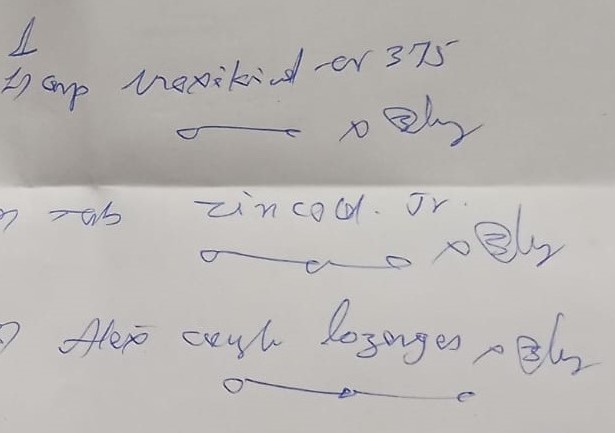 1
1) cap Moxikind-cv 375
x 3 day
tab zincod. Jr.
x 3 day
Alex cough lozenges x 3 day